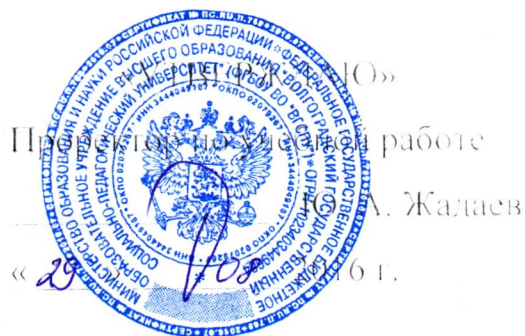 «УТВЕРЖДАЮ»
Проректор по учебной работе
Ю.А. Жадаев
« 29 » 08 2016 г.
МИНИСТЕРСТВО ОБРАЗОВАНИЯ И НАУКИ РОССИЙСКОЙ ФЕДЕРАЦИИ * ФЕДЕРАЛЬНОЕ ГОСУДАРСТВЕННОЕ БЮДЖЕТНОЕ
ОБРАЗОВАТЕЛЬНОЕ УЧРЕЖДЕНИЕ ВЫСШЕГО ОБРАЗОВАНИЯ «ВОЛГОГРАДСКИЙ ГОСУДАРСТВЕННЫЙ
СОЦИАЛЬНО-ПЕДАГОГИЧЕСКИЙ УНИВЕРСИТЕТ» (ФГБОУ ВО «ВГСПУ») * ОГРН